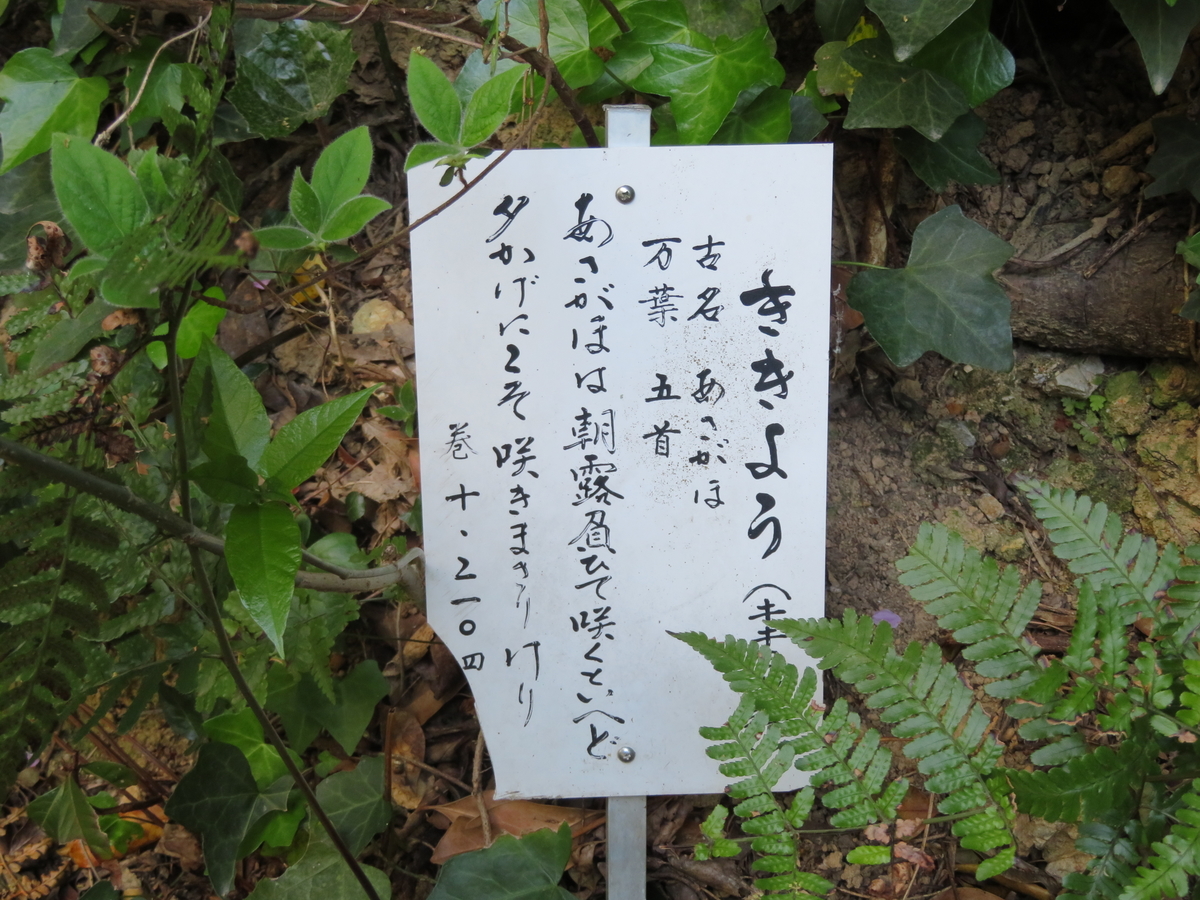 ききよう（キ
古名 あさがほ
万葉 五首
あさがほは朝露負ひて咲くといへど
夕かげにこそ咲きまさりけり
巻 十・二一〇四